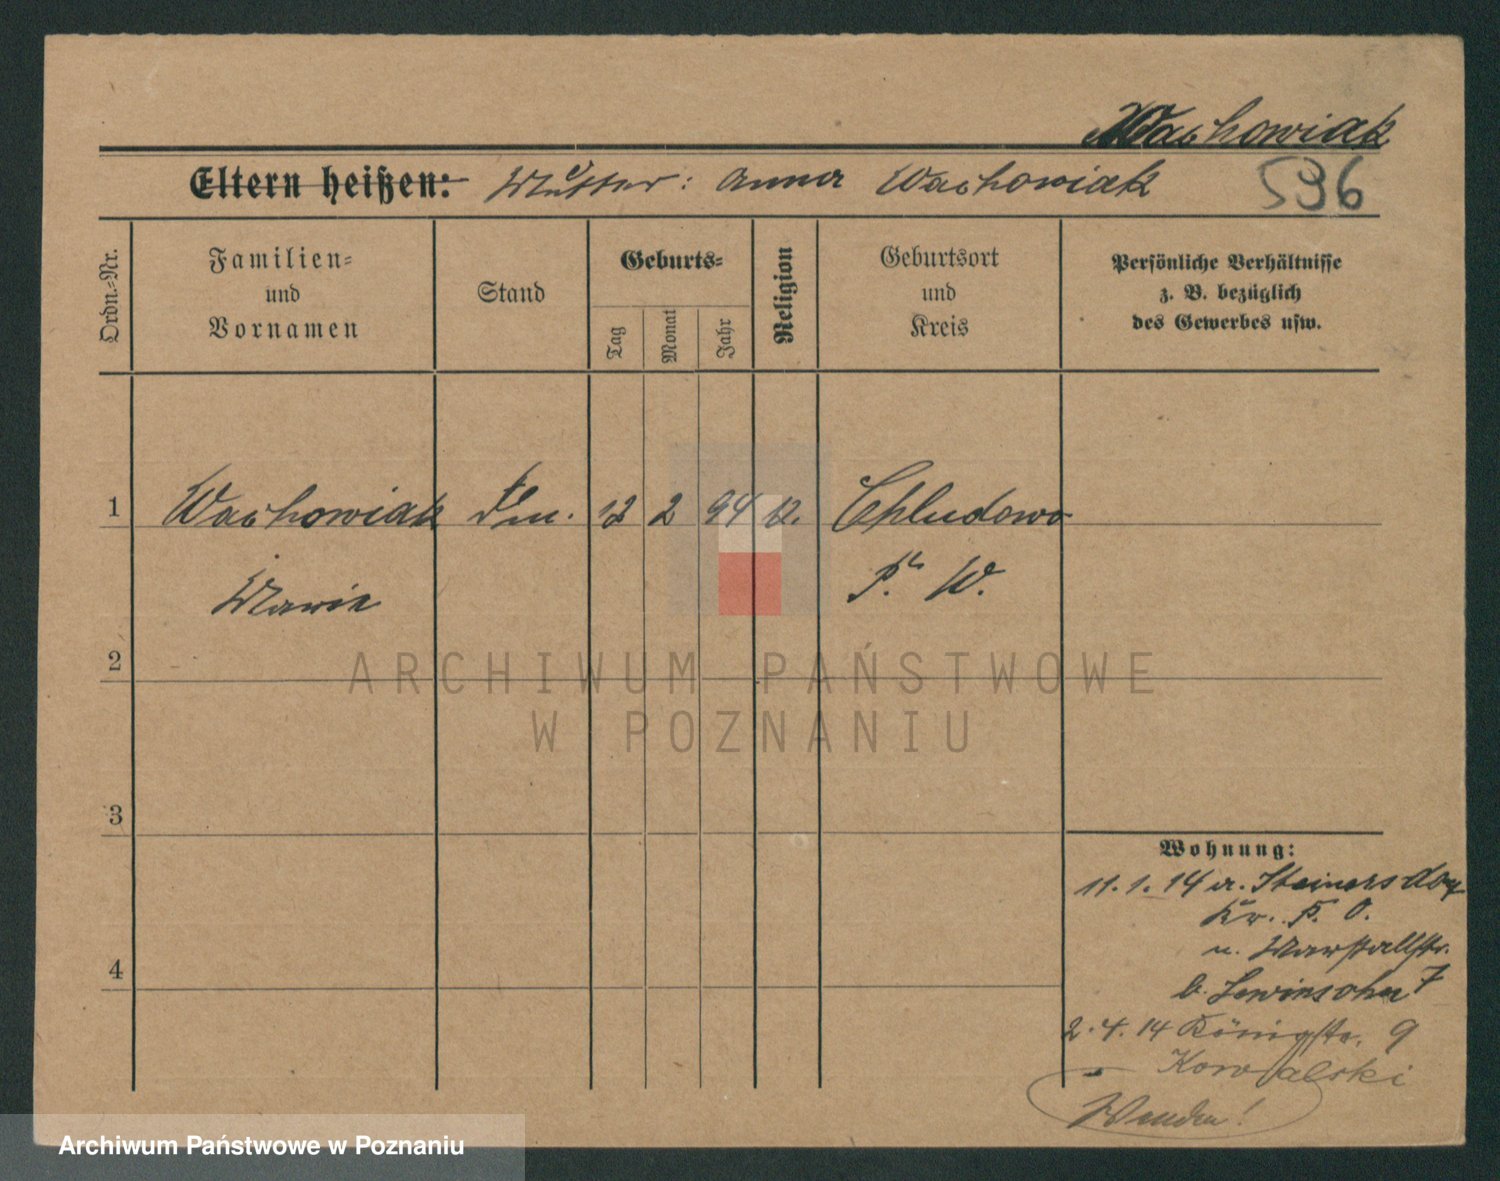 Wachowiak
Eltern heißen: Mutter: Anna Wachowiak 596
Ordn.=Nr.
Familien=
und
Vornamen
Stand
Geburts=
Tag
Monat
Jahr
Religion
Geburtsort
und
Kreis
Persönliche Verhältnisse
z. B. bezüglich
des Gewerbes usw.
1 Wachowiak 2 94 Chludowo
Marie P. W.
2
3
4
Wohnung:
11.1.14 a. Steinersdorf
Kr. P. O.
n. Marstallstr.
b. Lewinsohn 7
2.4.14 Königstr. 9
Kowalski
Wenden!
ARCHIWUM PAŃSTWOWE
W POZNANIU
Archiwum Państwowe w Poznaniu